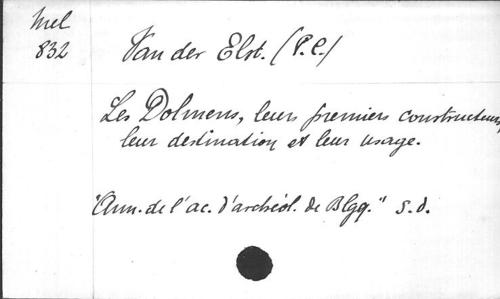 Mel
832
Van der Elst. (P.C.)
Les Dolmens, leurs premiers constructeurs,
leur destination et leur usage.
"Ann. de l'ac. d'archéol. de Blgq." s.d.